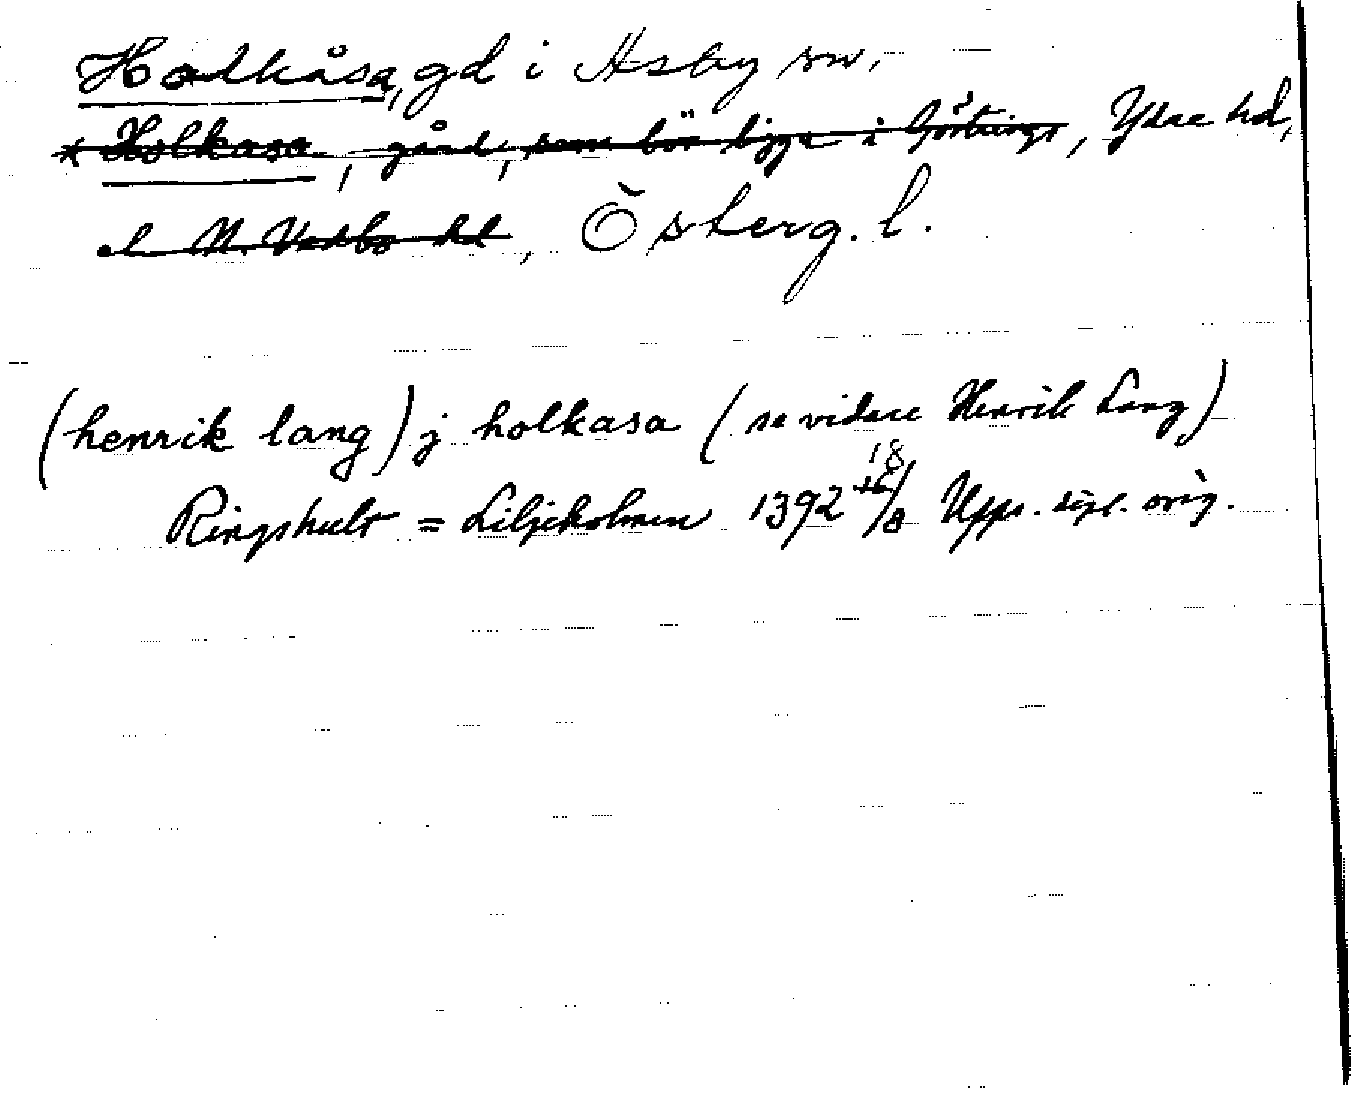 Holkåsa, gd i Asby sn.
* Holkasa, gård, som bör ligga i, Ydre hd,
el N. Vedbo hd, Österg. l.
(henrik lang) j holkasa (se vidare Henrik Lang)
Ringshult = Liljeholmen 1392 18/8 Upps. sigl. orig.